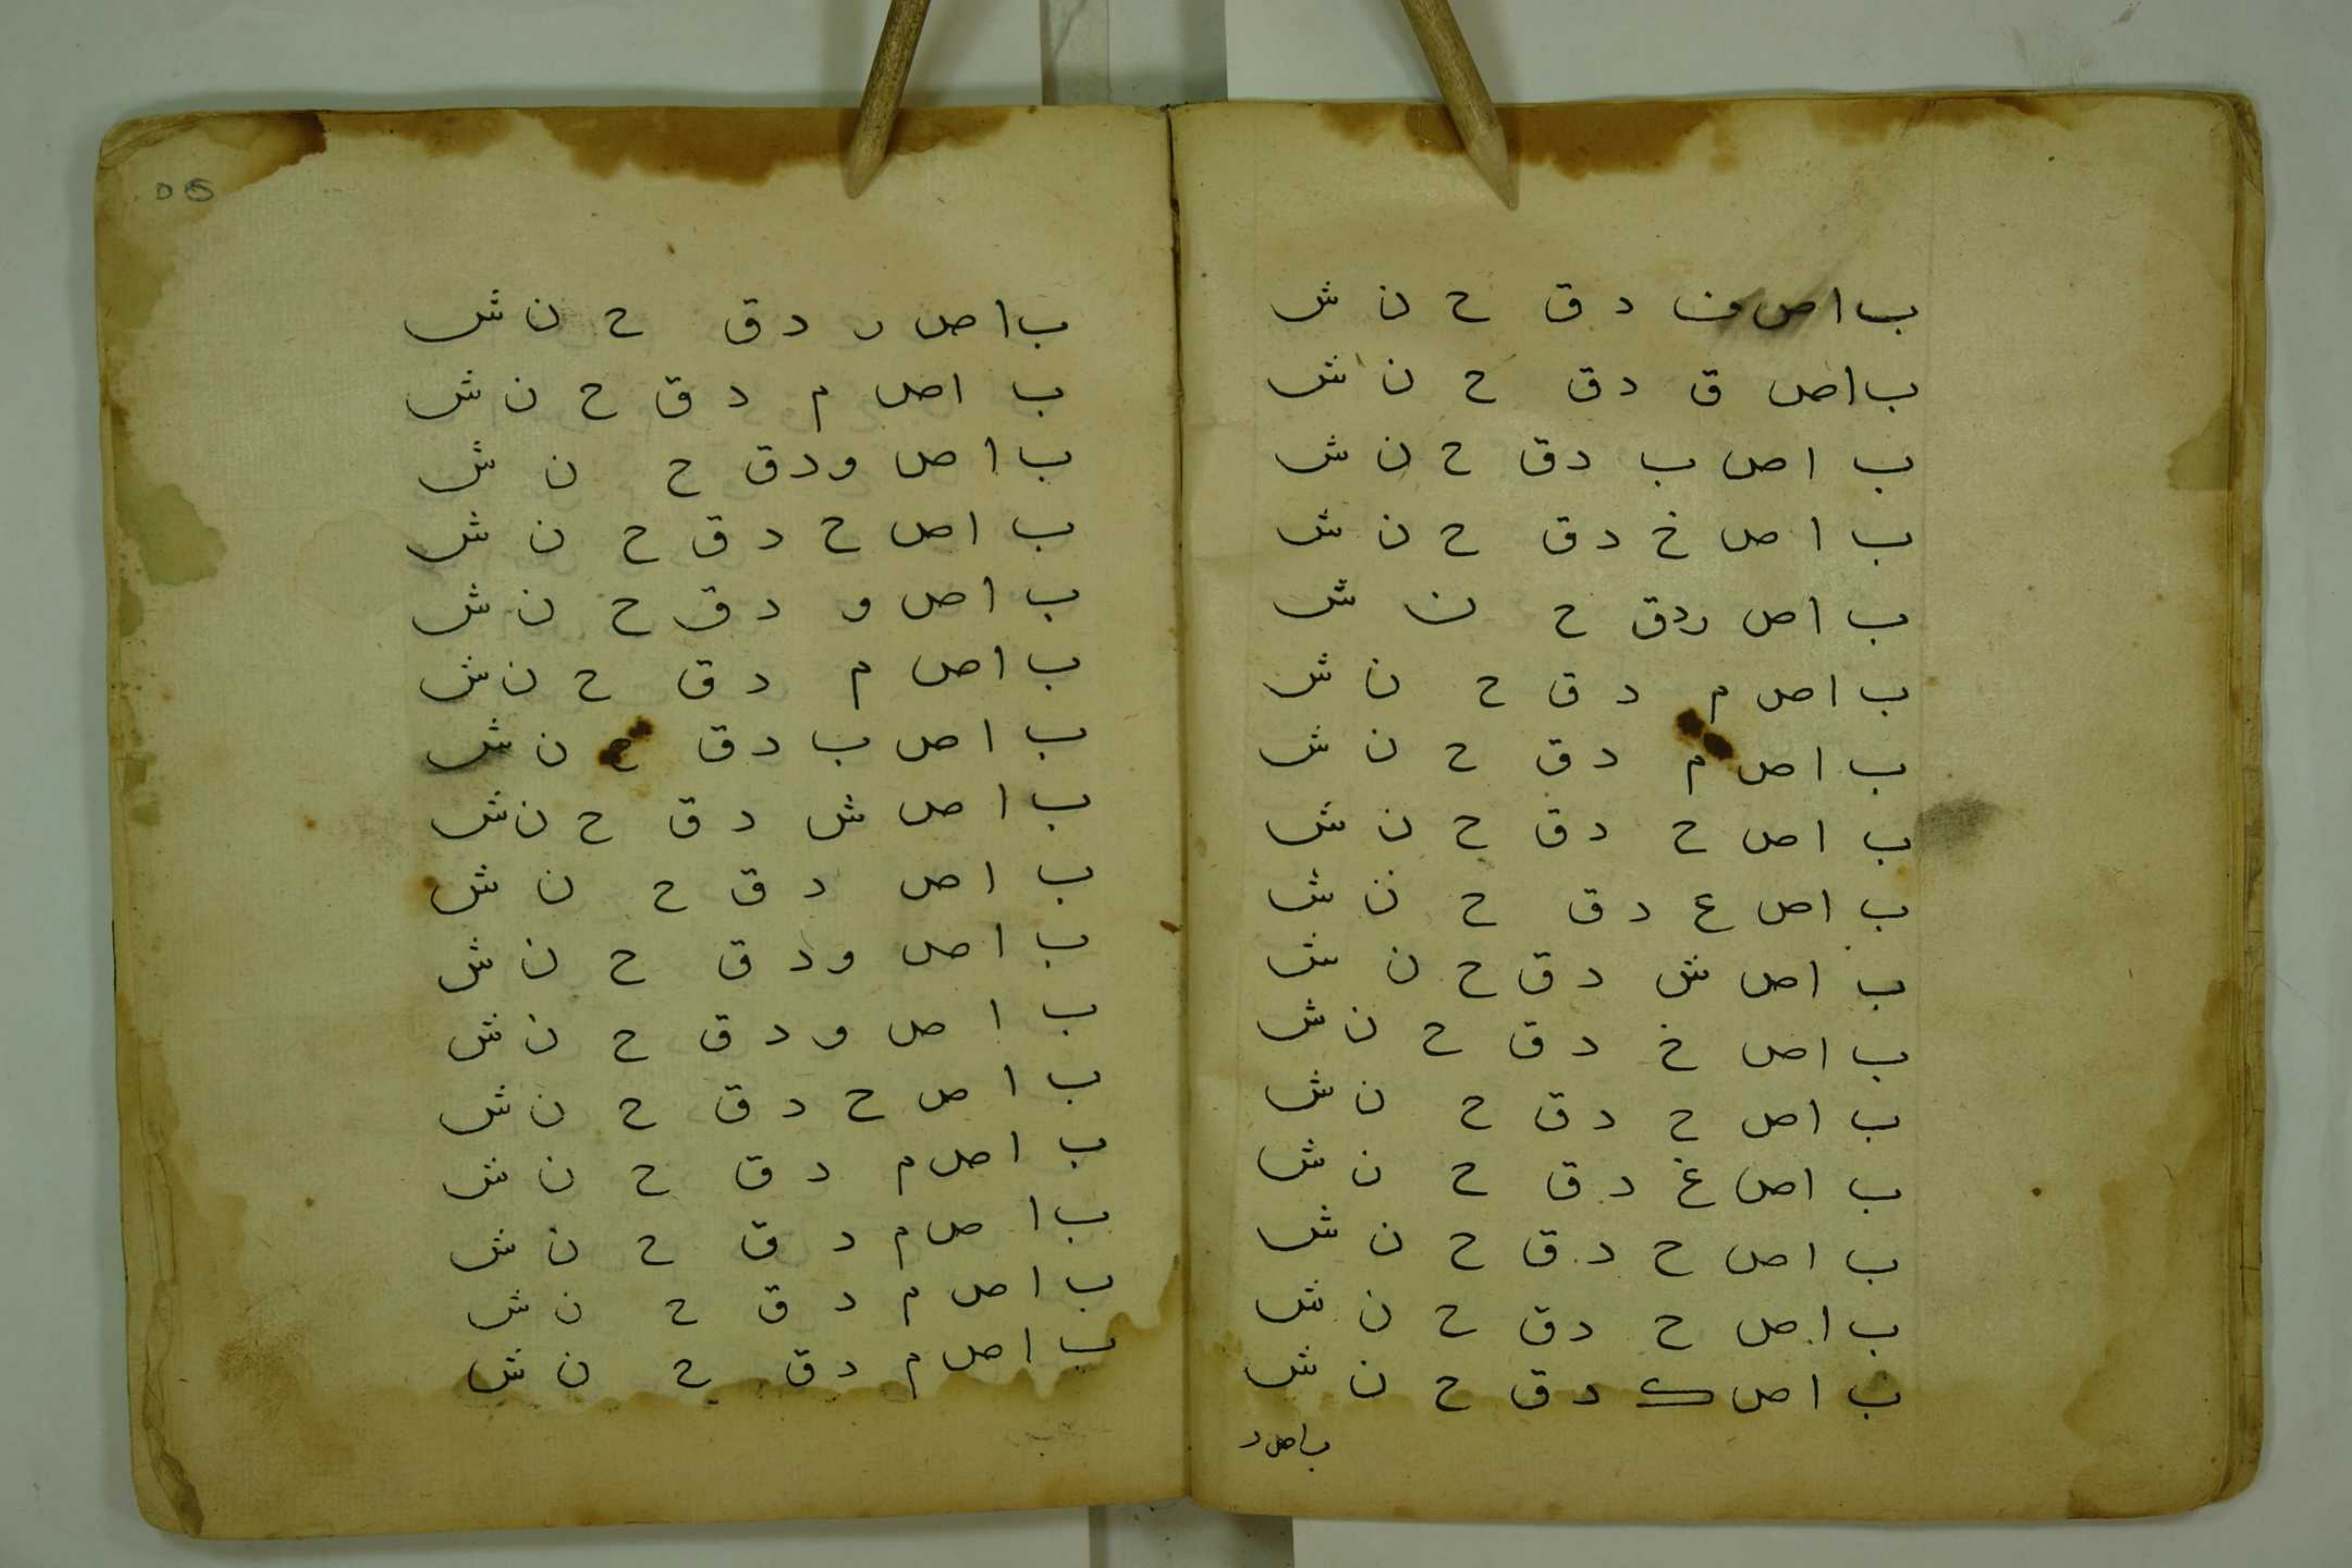 ب ا ص ف د ق ح ن ش
ب ا ص ق د ق ح ن ش
ب ا ص ب د ق ح ن ش
ب ا ص خ د ق ح ن ش
ب ا ص ر د ق ح ن ش
ب ا ص م د ق ح ن ش
ب ا ص م د ق ح ن ش
ب ا ص ح د ق ح ن ش
ب ا ص ع د ق ح ن ش
ب ا ص ش د ق ح ن ش
ب ا ص خ د ق ح ن ش
ب ا ص ح د ق ح ن ش
ب ا ص غ د ق ح ن ش
ب ا ص ح د ق ح ن ش
ب ا ص ح د ق ح ن ش
ب ا ص ك د ق ح ن ش
ب ا ص ر
ب ا ص ر د ق ح ن ش
ب ا ص م د ق ح ن ش
ب ا ص و د ق ح ن ش
ب ا ص ح د ق ح ن ش
ب ا ص و د ق ح ن ش
ب ا ص م د ق ح ن ش
ب ا ص ب د ق ح ن ش
ب ا ص ش د ق ح ن ش
ب ا ص د ق ح ن ش
ب ا ص و د ق ح ن ش
ب ا ص و د ق ح ن ش
ب ا ص ح د ق ح ن ش
ب ا ص م د ق ح ن ش
ب ا ص م د ق ح ن ش
ب ا ص م د ق ح ن ش
ب ا ص م د ق ح ن ش